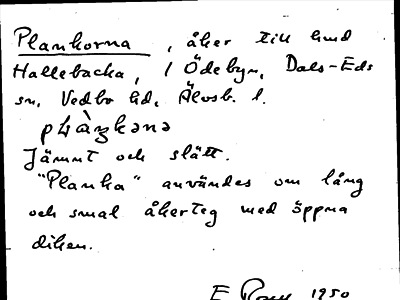 Plankorna, åker till hmd
Hallebacka, 1 Ödebyn, Dals-Eds
sn, Vedbo hd, Älvsb. l.
Jämnt och slätt.
"Planka" användes om lång
och smal åkerteg med öppna
diken.
E 1950